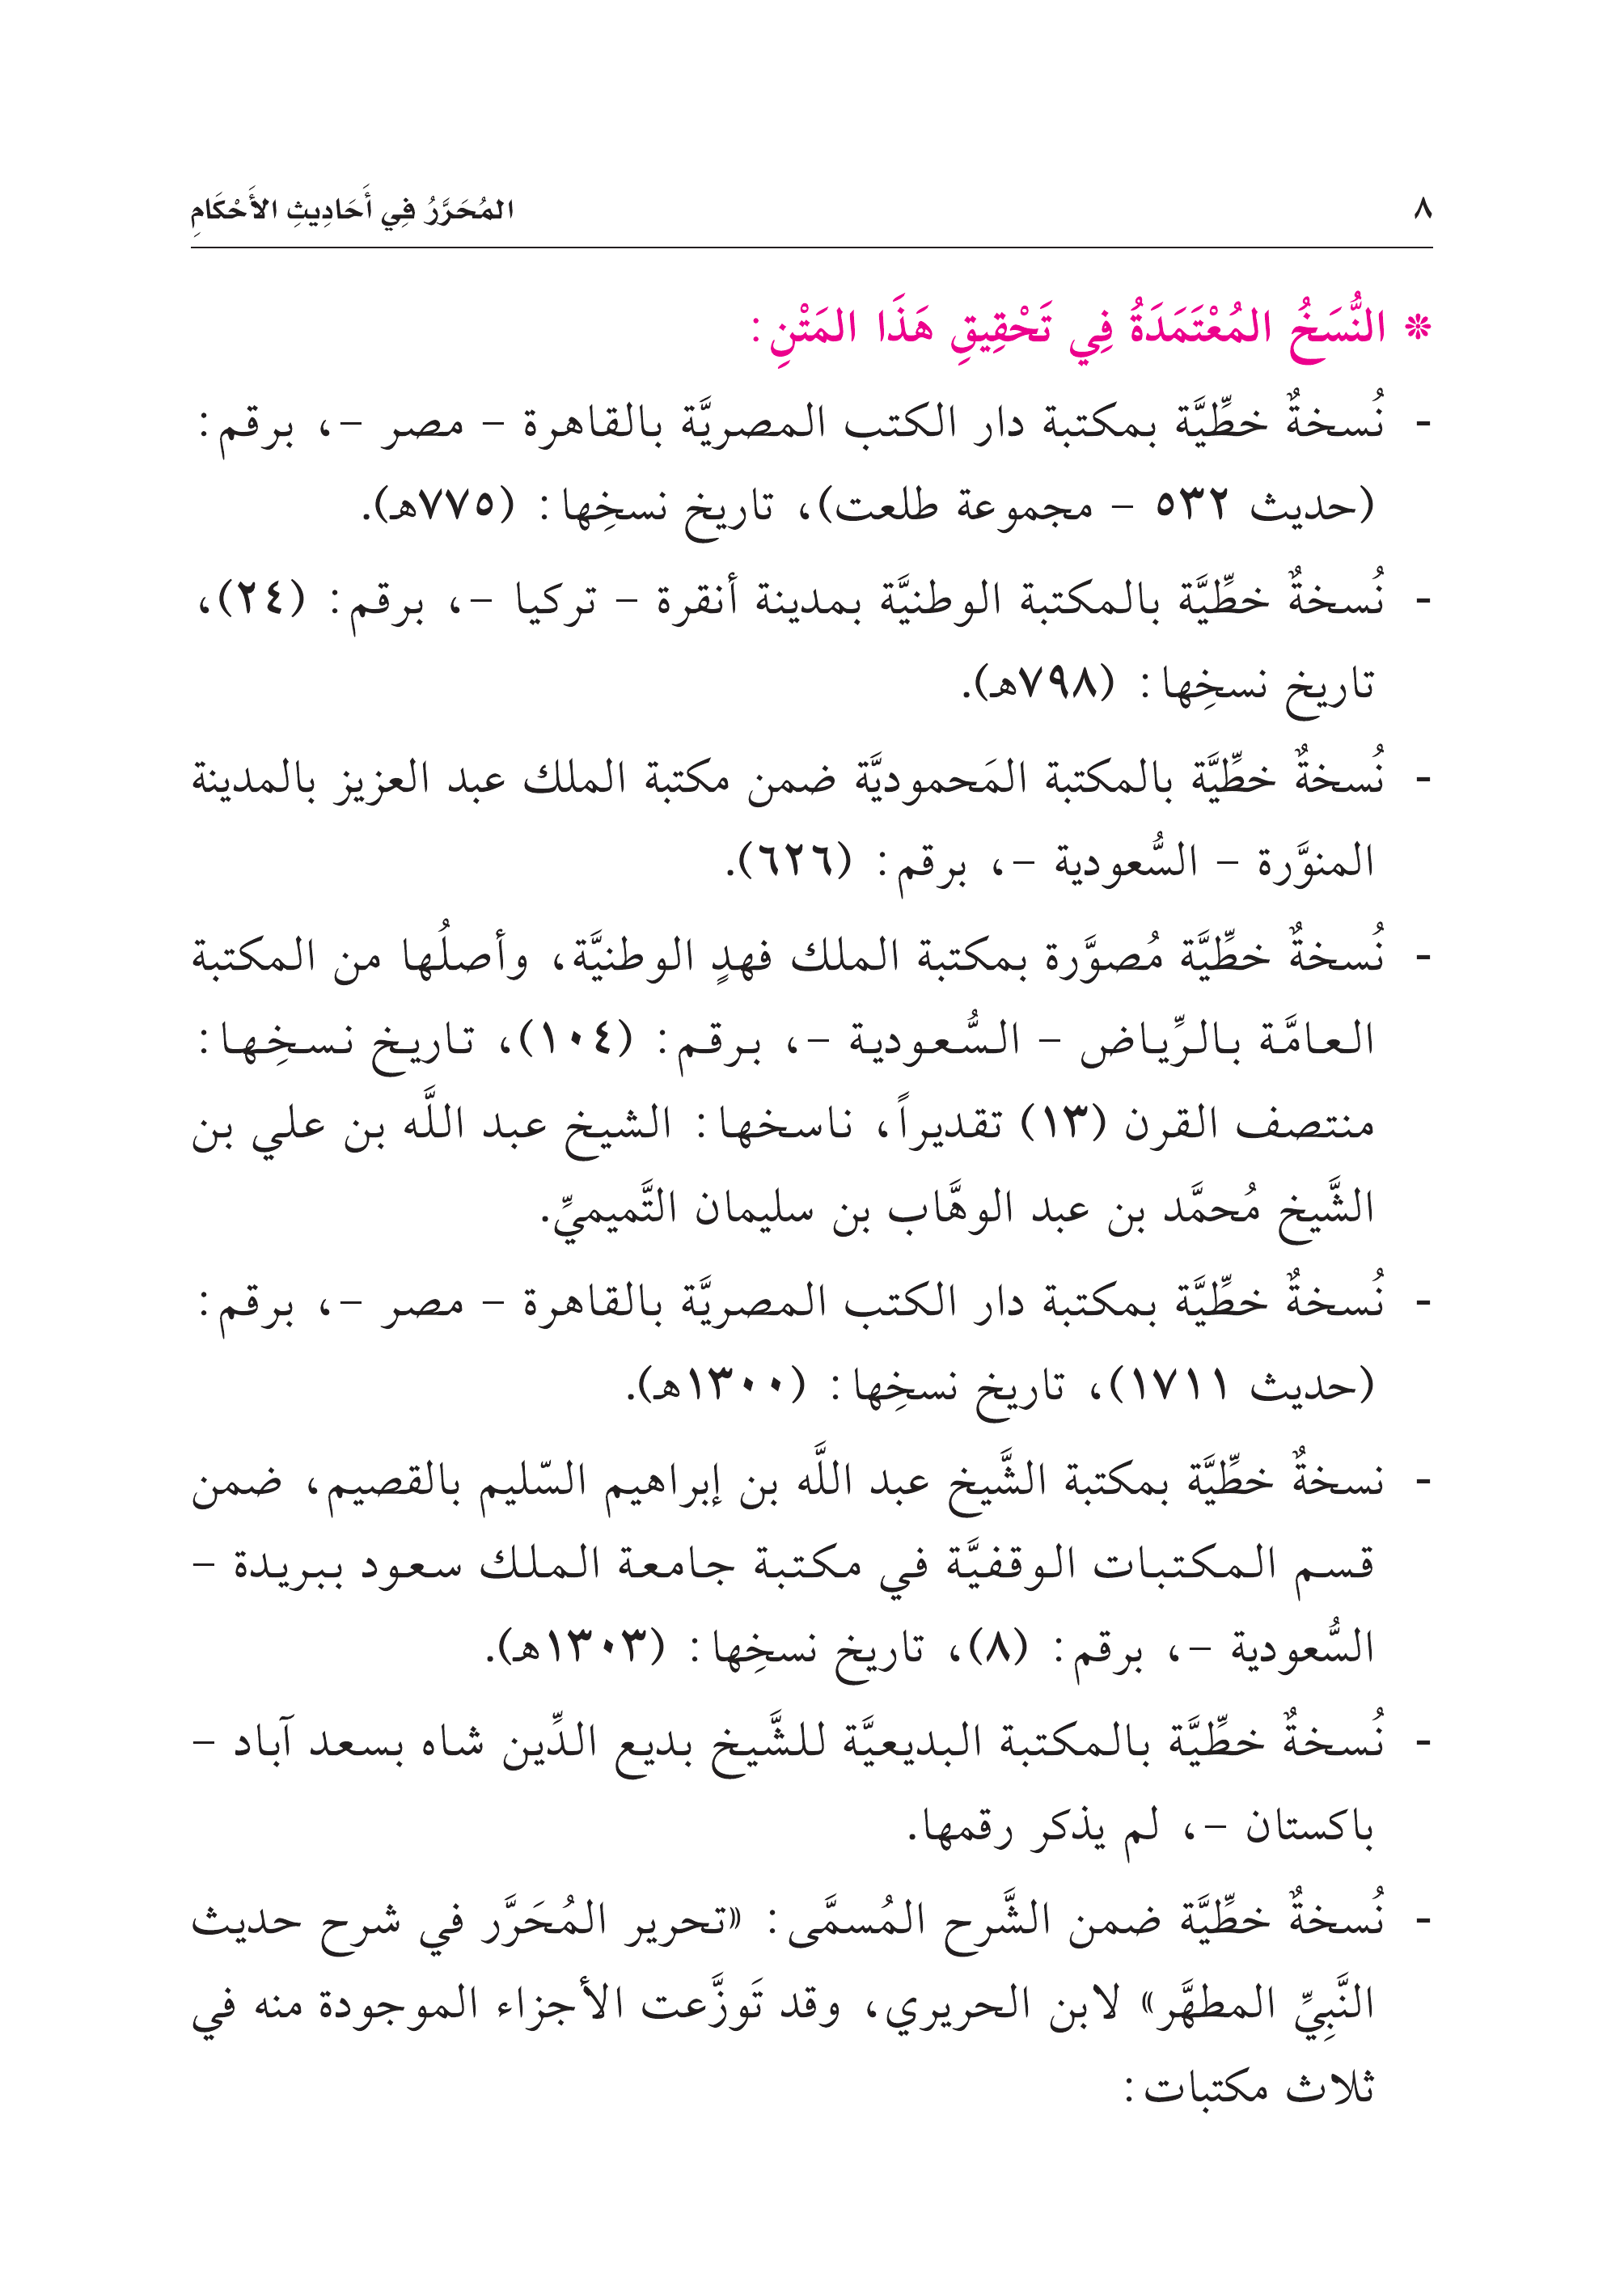 ٨
المُحَرَّرُ فِي أَحَادِيثِ الأَحْكَامِ
* النُّسَخُ المُعْتَمَدَةُ فِي تَحْقِيقِ هَذَا المَتْنِ:
- نُسخةٌ خطِّيَّة بمكتبة دار الكتب المصريَّة بالقاهرة – مصر –، برقم:
(حديث ٥٣٢ – مجموعة طلعت)، تاريخ نسخِها: (٧٧٥هـ).
- نُسخةٌ خطِّيَّة بالمكتبة الوطنيَّة بمدينة أنقرة – تركيا –، برقم: (٢٤)،
تاريخ نسخِها: (٧٩٨هـ).
- نُسخةٌ خطِّيَّة بالمكتبة المَحموديَّة ضمن مكتبة الملك عبد العزيز بالمدينة
المنوَّرة – السُّعودية –، برقم: (٦٢٦).
- نُسخةٌ خطِّيَّة مُصوَّرة بمكتبة الملك فهدٍ الوطنيَّة، وأصلُها من المكتبة
العامَّة بالرِّياض – السُّعودية –، برقم: (١٠٤)، تاريخ نسخِها:
منتصف القرن (١٣) تقديراً، ناسخها: الشيخ عبد اللَّه بن علي بن
الشَّيخ مُحمَّد بن عبد الوهَّاب بن سليمان التَّميميِّ.
- نُسخةٌ خطِّيَّة بمكتبة دار الكتب المصريَّة بالقاهرة – مصر –، برقم:
(حديث ١٧١١)، تاريخ نسخِها: (١٣٠٠هـ).
- نسخةٌ خطِّيَّة بمكتبة الشَّيخ عبد اللَّه بن إبراهيم السّليم بالقصيم، ضمن
قسم المكتبات الوقفيَّة في مكتبة جامعة الملك سعود ببريدة –
السُّعودية –، برقم: (٨)، تاريخ نسخِها: (١٣٠٣هـ).
- نُسخةٌ خطِّيَّة بالمكتبة البديعيَّة للشَّيخ بديع الدِّين شاه بسعد آباد –
باكستان –، لم يذكر رقمها.
- نُسخةٌ خطِّيَّة ضمن الشَّرح المُسمَّى: «تحرير المُحَرَّر في شرح حديث
النَّبِيِّ المطهَّر» لابن الحريري، وقد تَوزَّعت الأجزاء الموجودة منه في
ثلاث مكتبات: